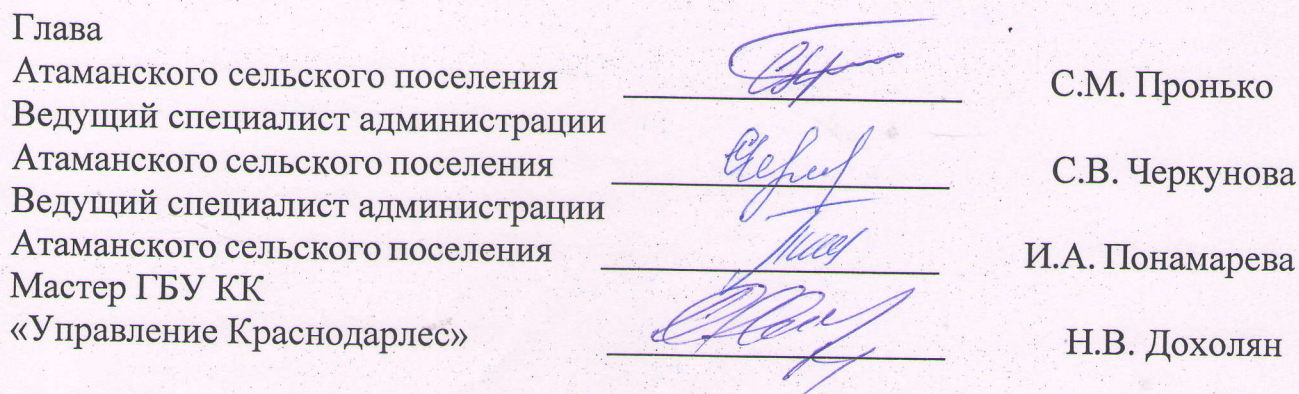 Глава
Атаманского сельского поселения С.М. Пронько
Ведущий специалист администрации
Атаманского сельского поселения С.В. Черкунова
Ведущий специалист администрации
Атаманского сельского поселения И.А. Понамарева
Мастер ГБУ КК
«Управление Краснодарлес» Н.В. Дохолян